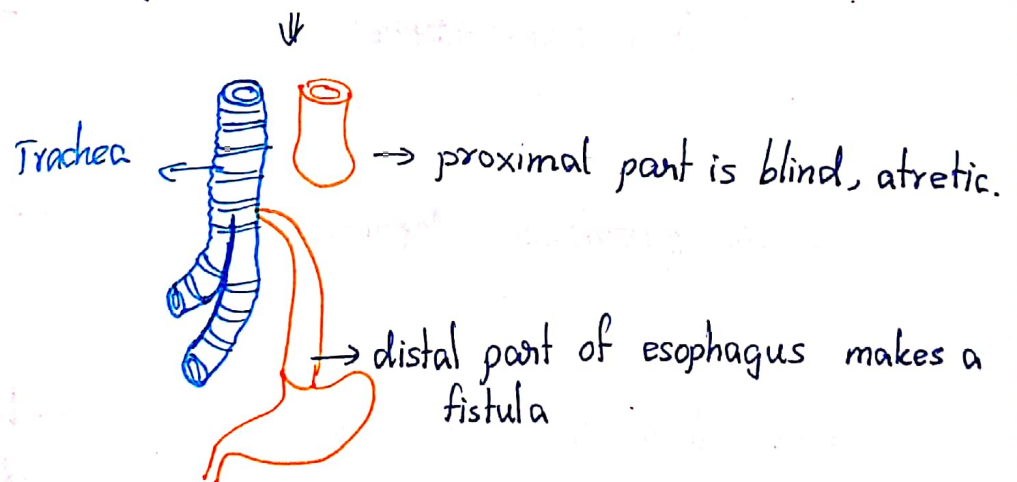 Trachea
→ proximal part is blind, atretic.
→ distal part of esophagus makes a
fistula